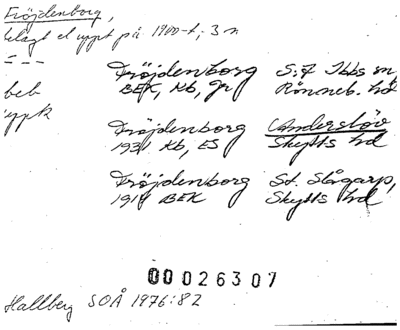 Fröjdenborg,
belagt el uppt på 1900-t, 3 n
Fröjdenborg S:t Ibbs sn
beb BEK, Kb, Gr Rönneb. hd
uppk
Fröjdenborg Anderslöv
1931 Kb, ES Skytts hd
Fröjdenborg St. Slågarp,
1914 BEK Skytts hd
00026307
Hallberg SOÅ 1976:82